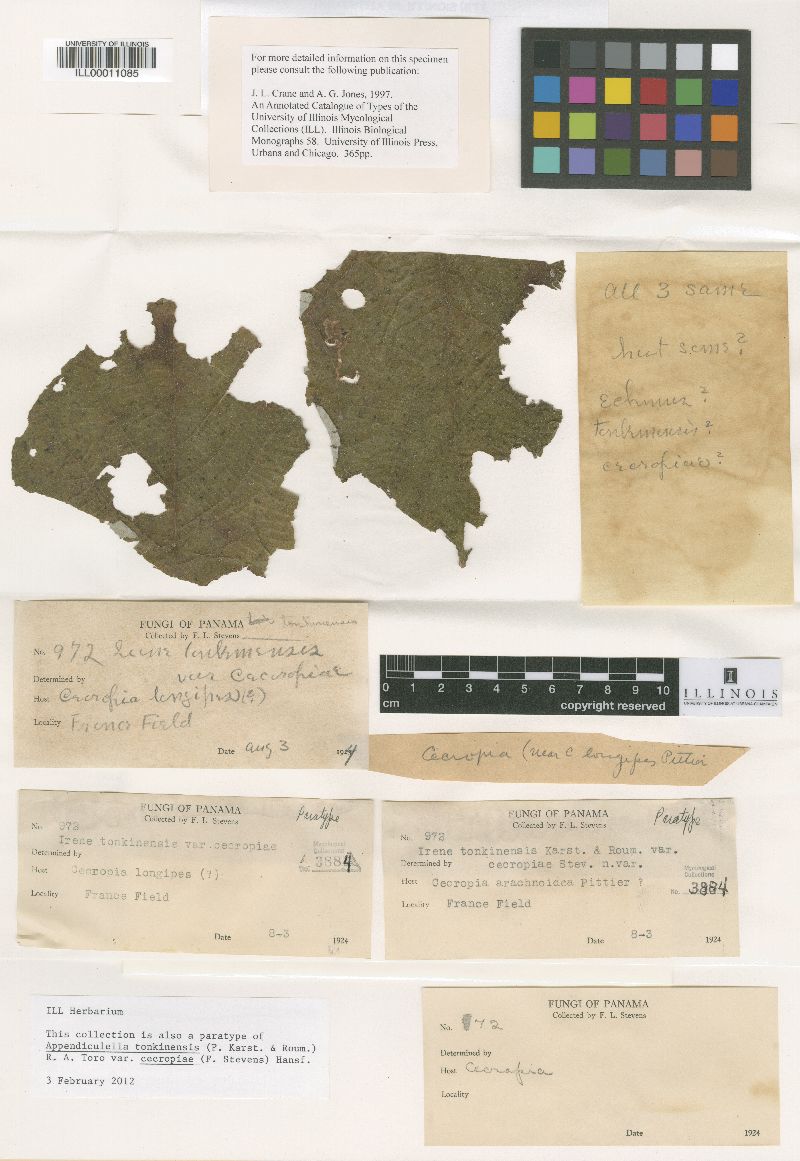 UNIVERSITY OF ILLINOIS
ILL00011085
For more detailed information on this specimen
please consult the following publication:
J. L. Crane and A. G. Jones, 1997.
An Annotated Catalogue of Types of the
University of Illinois Mycological
Collections (ILL). Illinois Biological
Monographs 58. University of Illinois Press,
Urbana and Chicago. 365pp.
all 3 same
host same?
Echinus?
tonkinensis?
cecropiae?
FUNGI OF PANAMA tonkinensis
Collected by F. L. Stevens
No. 972 Irene tonkinensis
Determined by var Cecropiae
Host Cecropia longipes (?)
Locality France Field
Date Aug 3 1924
0 1 2 3 4 5 6 7 8 9 10
cm copyright reserved
ILLINOIS
UNIVERSITY OF ILLINOIS AT URBANA-CHAMPAIGN
Cecropia (near C longipes Pittier
FUNGI OF PANAMA
Collected by F. L. Stevens
Paratype
No. 972
Irene tonkinensis var.cecropiae
Determined by
Mycological
Collections
No. 3884
Host Cecropia longipes (?)
Locality France Field
Date 8-3 1924
FUNGI OF PANAMA
Collected by F. L. Stevens
Paratype
No. 972
Irene tonkinensis Karst. & Roum. var.
Determined by cecropiae Stev. n.var.
Mycological
Collections
No. 3884
Host Cecropia arachnoidea Pittier ?
Locality France Field
Date 8-3 1924
ILL Herbarium
This collection is also a paratype of
Appendiculella tonkinensis (P. Karst. & Roum.)
R. A. Toro var. cecropiae (F. Stevens) Hansf.
3 February 2012
FUNGI OF PANAMA
Collected by F. L. Stevens
No. 972
Determined by
Host Cecropia
Locality
Date 1924